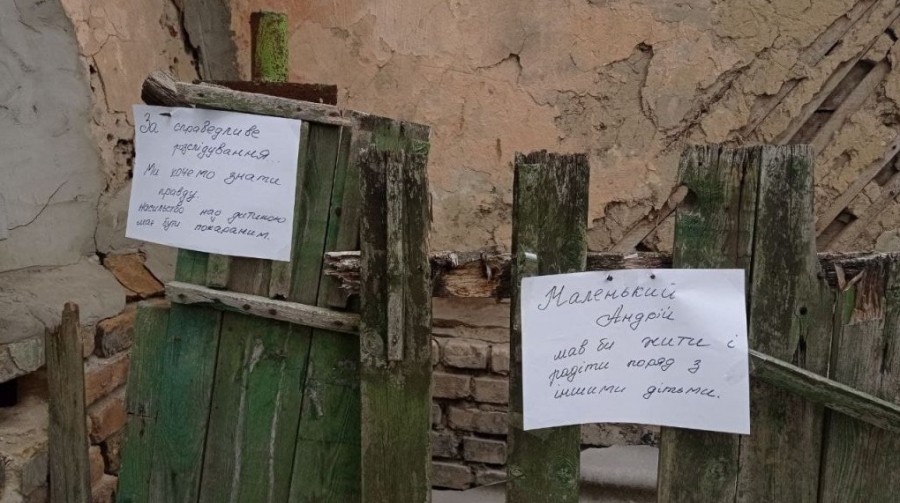 За справедливе
розслідування...
Ми хочемо знати
правду.
насильство над дитиною
має бути покараним.
Маленький
Андрій
мав би жити і
радіти поряд з
іншими дітьми.